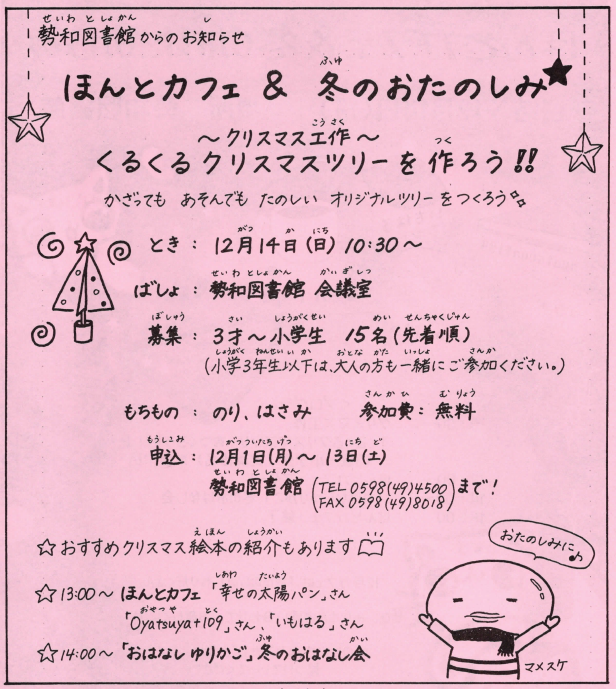 勢和図書館からのお知らせ
ほんとカフェ & 冬のおたのしみ
～クリスマス工作～
くるくるクリスマスツリーを作ろう!!
かざっても あそんでも たのしい オリジナルツリーをつくろう
とき : 12月14日(日) 10:30～
ばしょ : 勢和図書館 会議室
募集 : 3才～小学生 15名(先着順)
(小学3年生以下は、大人の方も一緒にご参加ください。)
もちもの : のり、はさみ 参加費 : 無料
申込 : 12月1日(月)～13日(土)
勢和図書館 (TEL 0598(49)4500
FAX 0598(49)8018) まで!
☆おすすめクリスマス絵本の紹介もあります
おたのしみに♪
☆13:00～ ほんとカフェ 「幸せの太陽パン」さん
「Oyatsuya+109」さん、「いもはる」さん
☆14:00～ 「おはなし ゆりかご」冬のおはなし会
マメスケ